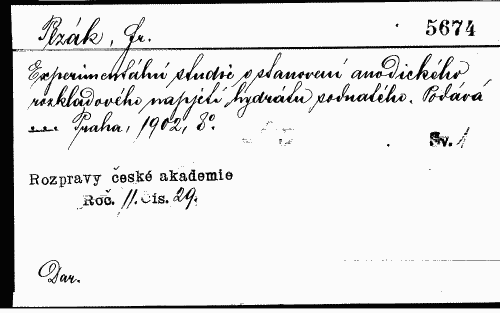 Plzák, Fr. 5674
Experimentální studie o stanovení anodického
rozkladového napjetí hydrátu sodnatého. Podává
Praha, 1902, 8°.
Sv. 1
Rozpravy české akademie
Roč. 11. Čis. 29.
Dar.